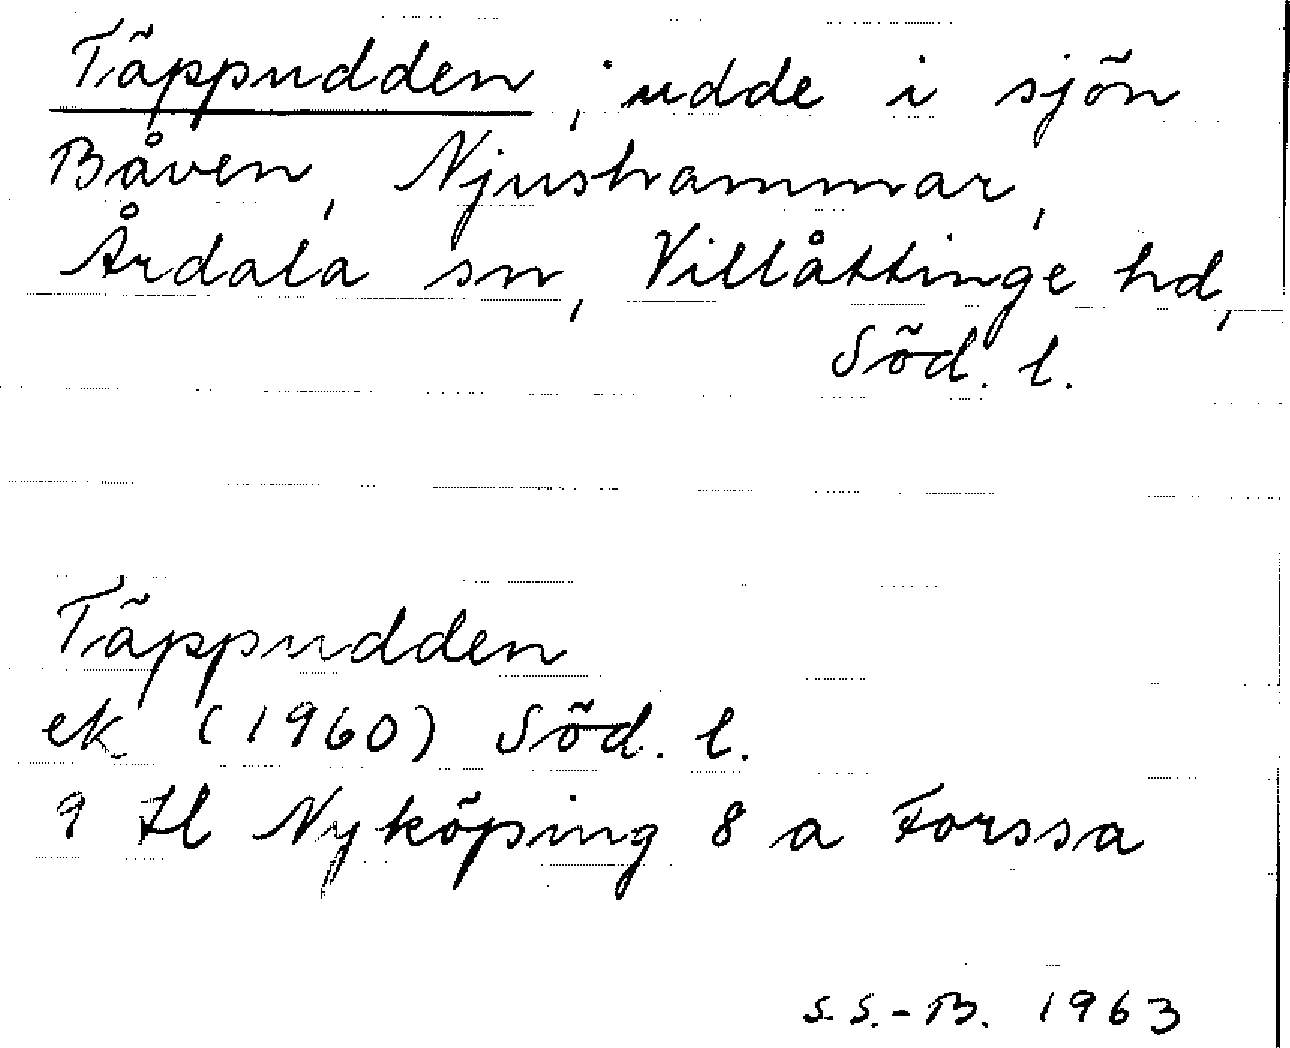 Täppudden, udde i sjön
Båven, Njushammar,
Årdala sn, Villåttinge hd,
Söd. l.
Täppudden
ek (1960) Söd. l.
9 H Nyköping 8 a Forssa
S.S.-B. 1963